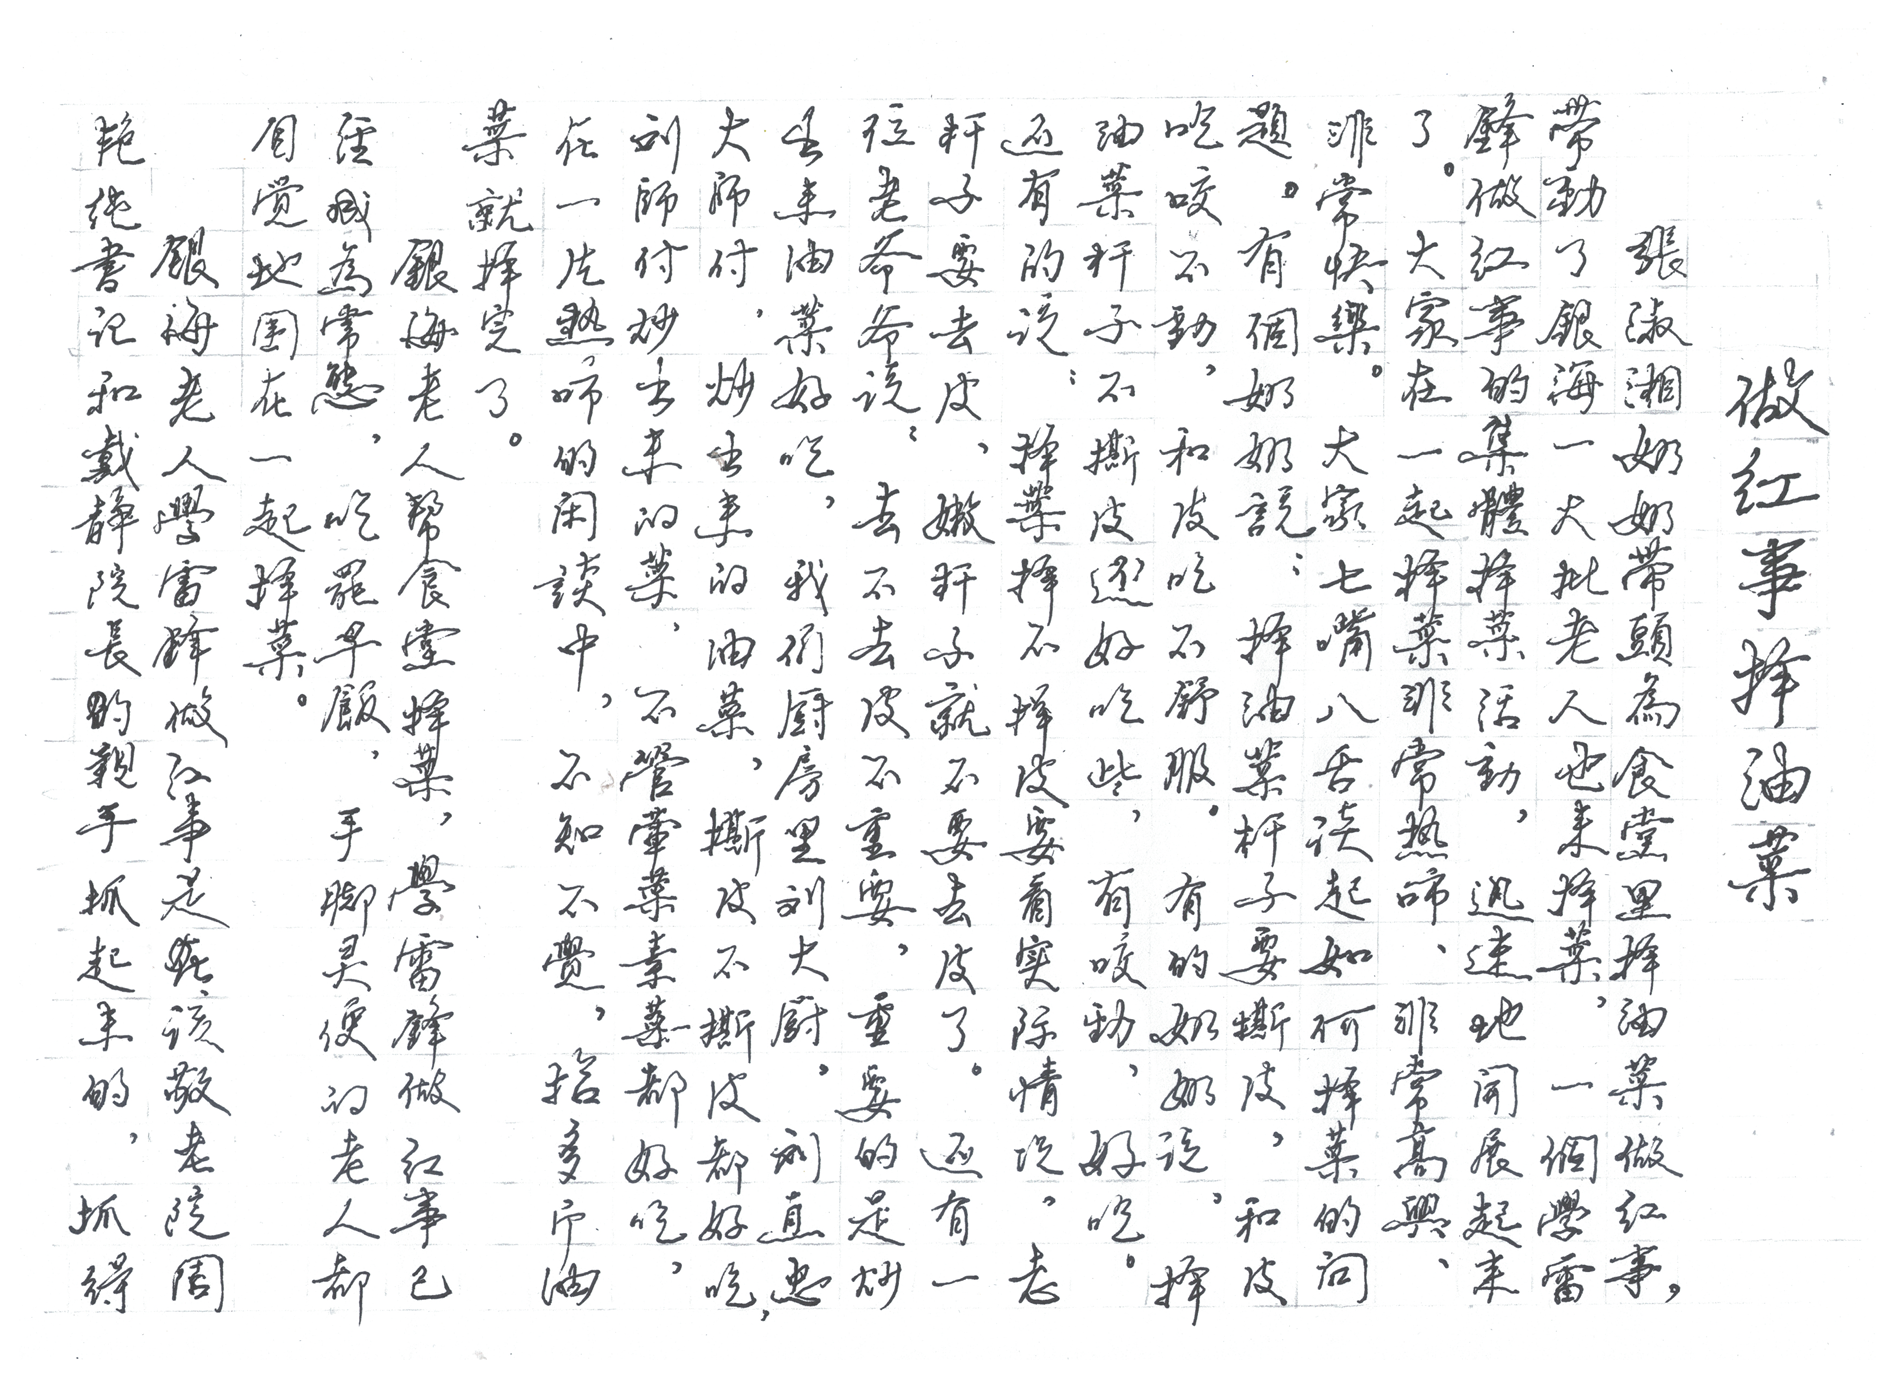 做红事择油菜
張淑湘奶奶带頭為食堂里择油菜做红事，
带動了銀海一大批老人也来择菜。一個學雷
鋒做红事的集體择菜活動，迅速地開展起来
了。大家在一起择菜非常热闹、非常高興、
非常快樂。大家七嘴八舌谈起如何择菜的问
题。有個奶奶說：择油菜杆子要撕皮，和皮
吃咬不動，和皮吃不舒服。有的奶奶说，择
油菜杆子不撕皮还好吃些，有咬劲，好吃。
还有的说：择菜择不择皮要看实际情况，老
杆子要去皮、嫩杆子就不要去皮了。还有一
位老爷爷说：去不去皮不重要，重要的是炒
出来油菜好吃，我们厨房里刘大厨，刘真忠
大师付，炒出来的油菜，撕皮不撕皮都好吃，
刘師付炒出来的菜，不管荤菜素菜都好吃，
在一片热闹的闲谈中，不知不覺，拾多斤油
菜就择完了。
銀海老人帮食堂择菜，學雷鋒做红事已
经成為常態，吃罷早飯，手脚灵便的老人都
自觉地围在一起择菜。
銀海老人學雷鋒做红事是該敬老院周
艳纯書记和戴静院長的親手抓起来的，抓得